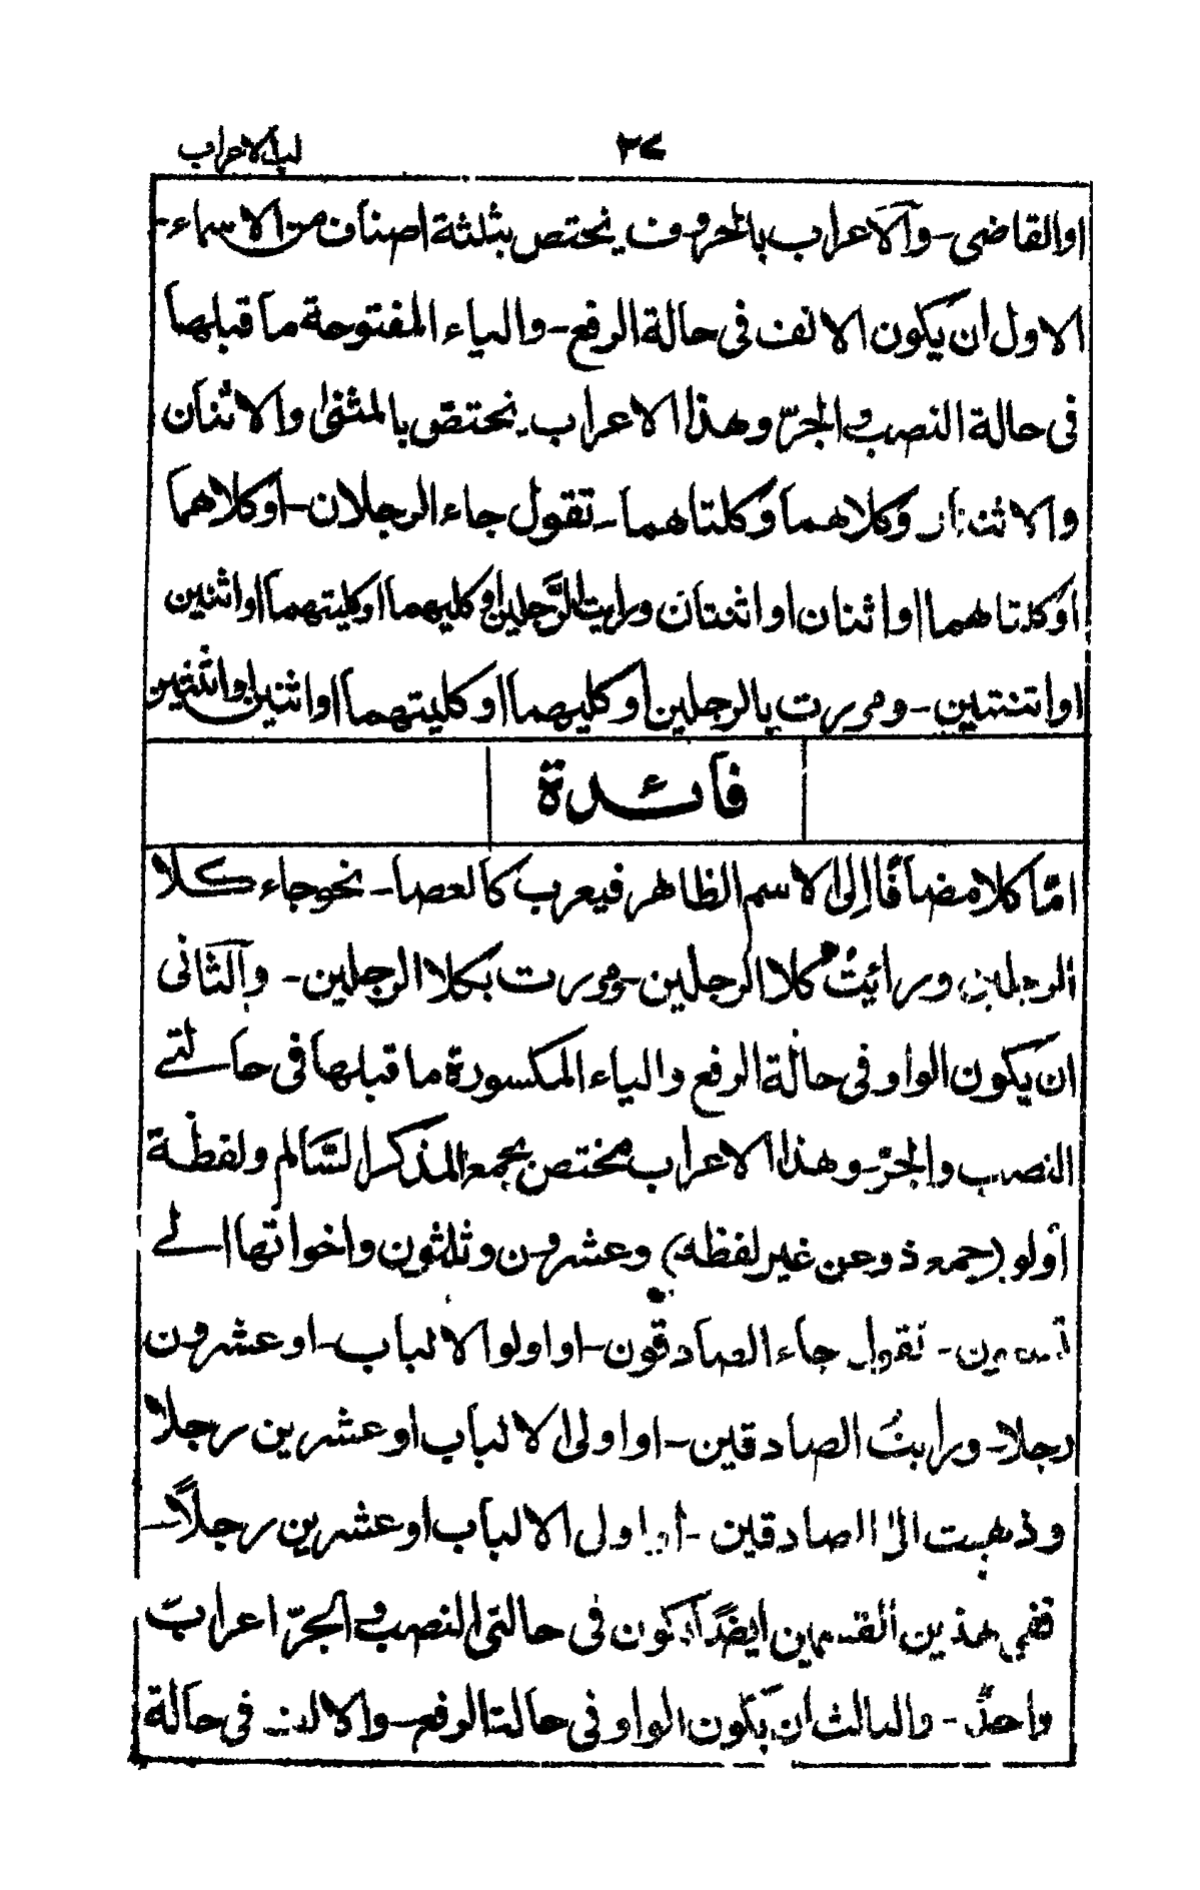 ٣٧
لب الاعراب
او القاضى - والاعراب بالحروف يختص بثلثة اصناف من الاسماء -
الاول ان يكون الالف فى حالة الرفع - والياء المفتوحة ما قبلها
فى حالة النصب والجرّ وهذا الاعراب يختصّ بالمثنى والاثنان
والاثنتان وكلاهما وكلتاهما - تقول جاء الرجلان - او كلاهما
او كلتاهما او اثنان او اثنتان ورايت الرَّجلين او كليهما او كليتهما او اثنين
او اثنتين - ومررت بالرجلين او كليهما او كليتهما او اثنين او اثنتين
فائدة
امّا كلا مضافًا الى الاسم الظاهر فيعرب كالعصا - نحو جاء كلا
الرجلين ورائيتُ كلا الرجلين - ومررت بكلا الرجلين - والثانى
ان يكون الواو فى حالة الرفع والياء المكسورة ما قبلها فى حالتے
النصب والجرّ - وهذا الاعراب مختص بجمع المذكر السَّالم ولفظة
أولو (جمع ذو عن غير لفظه) وعشرون وثلثون واخواتها الے
تسعين - تقول جاء الصادقون - او اولو الالباب - او عشرون
رجلا - ورايتُ الصادقين - او اولى الالباب او عشرين رجلا
وذهبت الى الصادقين - او اولى الالباب او عشرين رجلاً -
ففى هذين القسمين ايضًا يكون فى حالتى النصب والجرّ اعراب
واحدٌ - والثالث ان يكون الواو فى حالة الرفع - والالف فى حالة